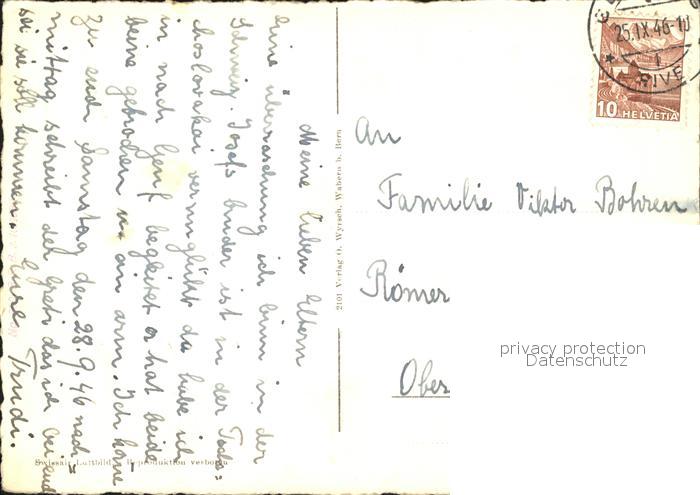 Meine lieben Eltern
Eine überraschung ich binn in der
Schweiz. Josefs bruder ist in der Tschs=
choslovakai verunglückt da habe ich
in nach Genf begleitet er hat beide
beine gebrochen u. ein arm. Ich kome
zu euch Samstag den 28.9.46 nach=
mittag schreibt der Greti das ich bei euch
sei sie soll kommen. Eure Trudi.
Swissair Luftbild Reproduktion verboten
2101 Verlag O. Wyrsch, Wabern b. Bern
25.IX.46-10
RIVE
10 HELVETIA
An
Familie Viktor Bohren
Römer
Ober
privacy protection
Datenschutz